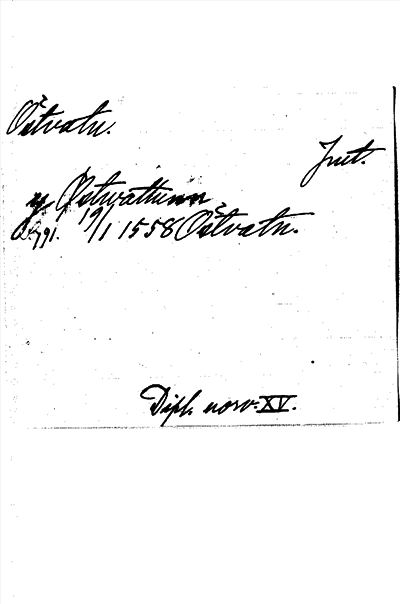 Östvatn.
Innt.
y Østwattunn
S. 791. 19/1 1558 Östvatn.
Dipl. norv. XV.